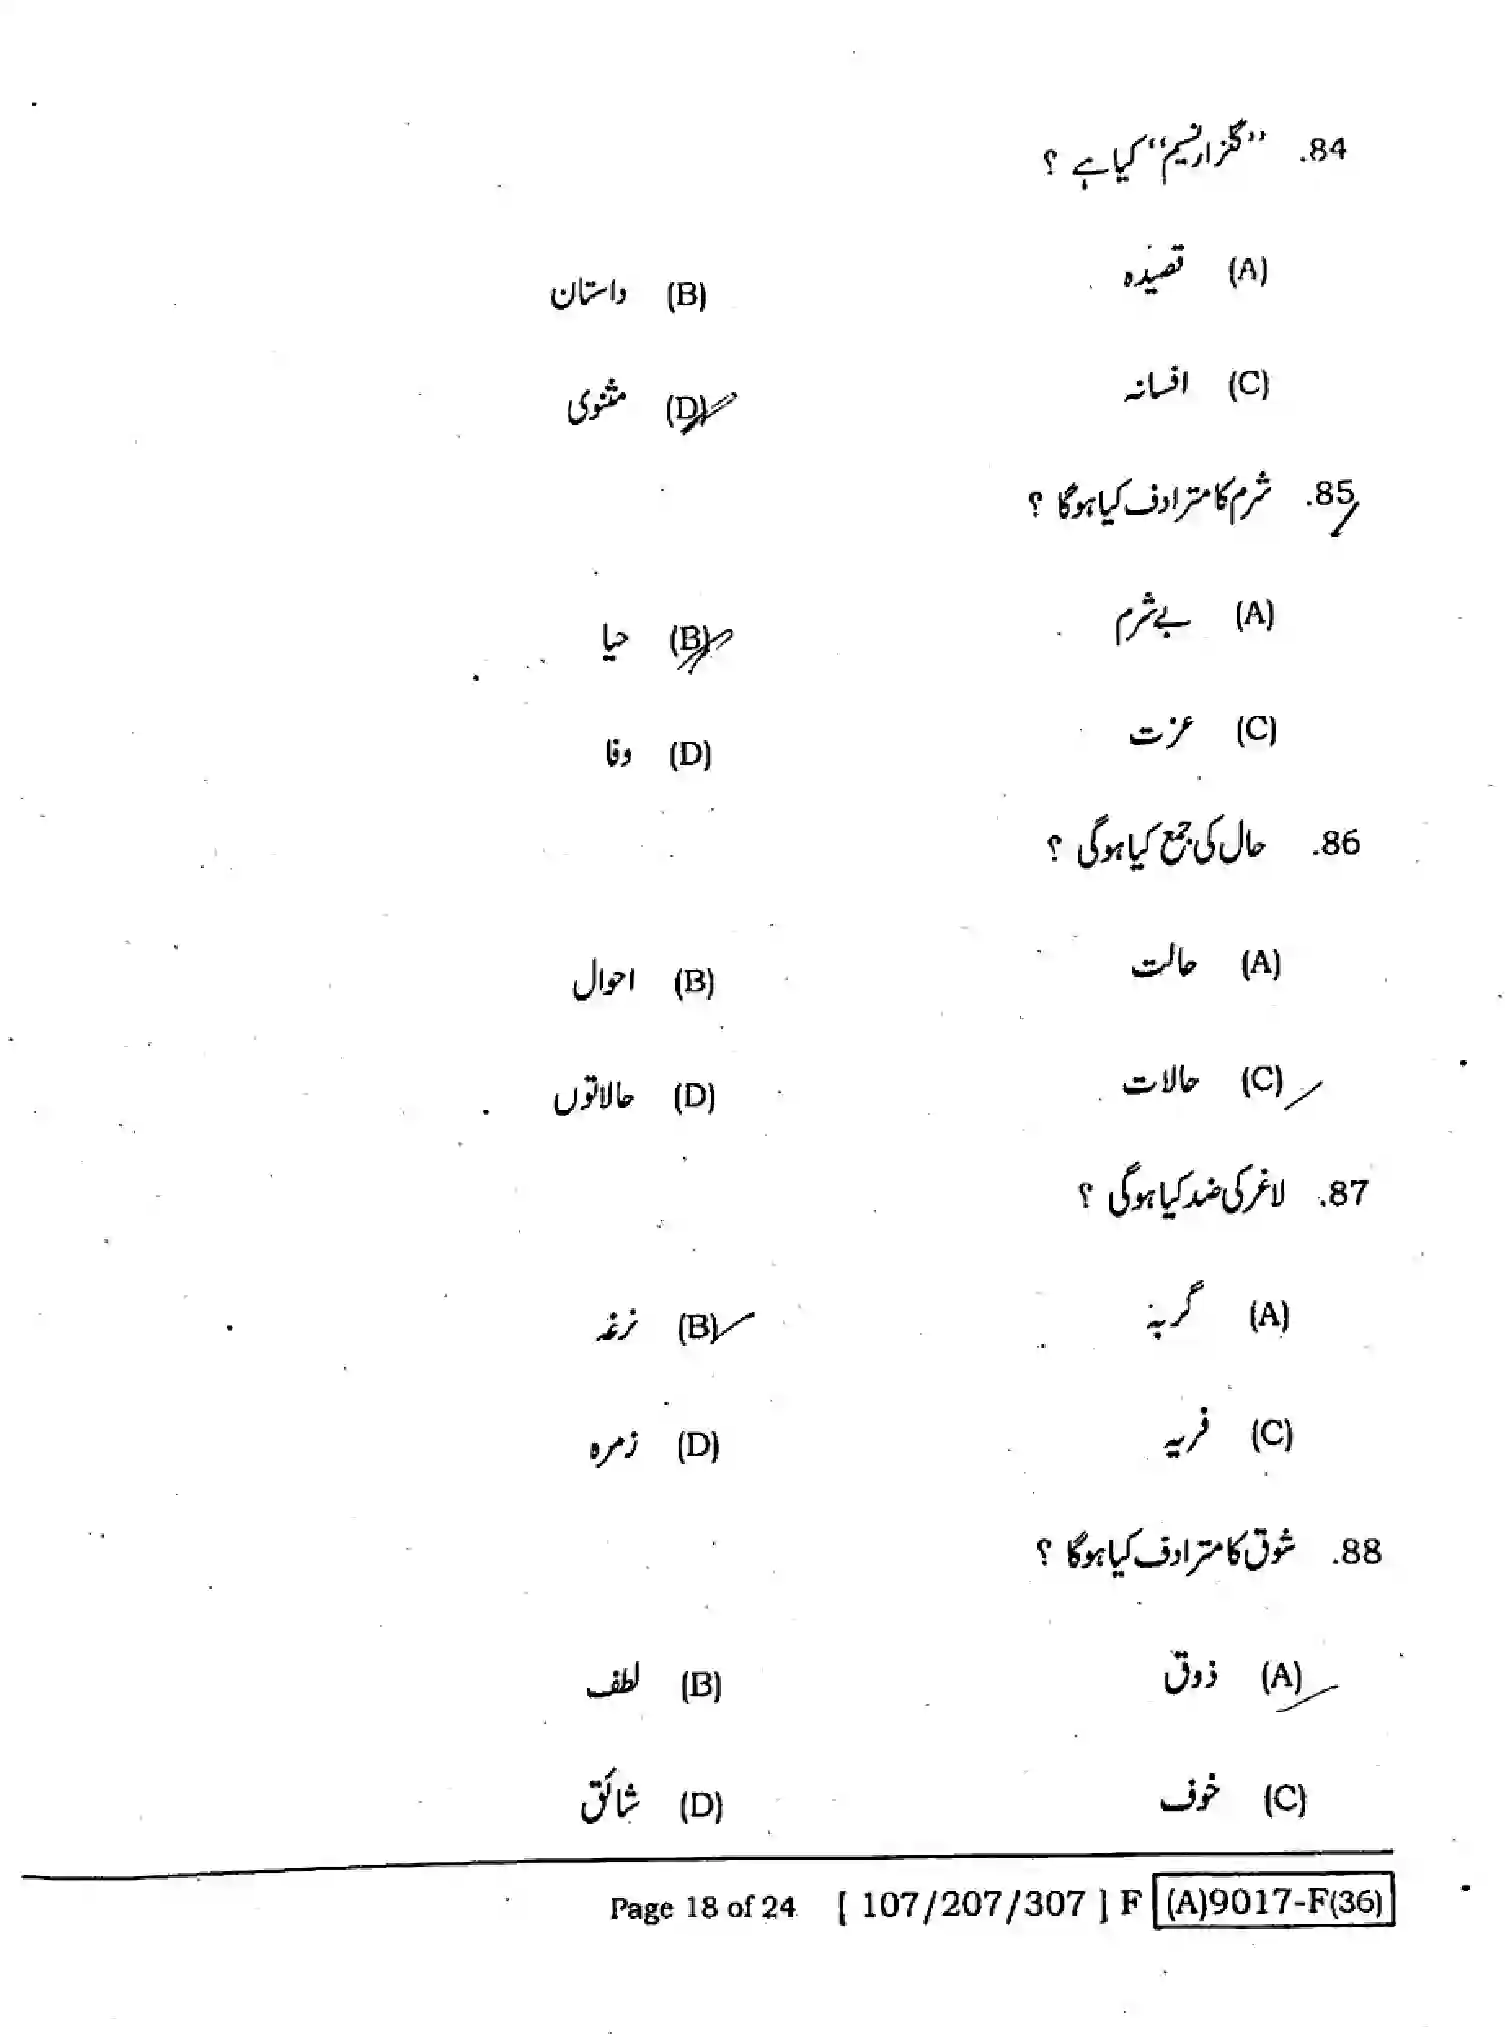 84. ’’گلزار نسیم‘‘ کیا ہے ؟
(A) قصیدہ
(B) داستان
(C) افسانہ
(D) مثنوی
85. شرم کا مترادف کیا ہوگا ؟
(A) بے شرم
(B) حیا
(C) عزت
(D) وفا
86. حال کی جمع کیا ہوگی ؟
(A) حالت
(B) احوال
(C) حالات
(D) حالاتوں
87. لاغر کی ضد کیا ہوگی ؟
(A) گربہ
(B) نرغہ
(C) فربہ
(D) زمرہ
88. شوق کا مترادف کیا ہوگا ؟
(A) ذوق
(B) لطف
(C) خوف
(D) شائق
Page 18 of 24 [ 107/207/307 ] F (A)9017-F(36)